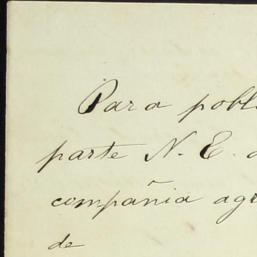 Para pobl
parte N. E. d
compañia agr
de